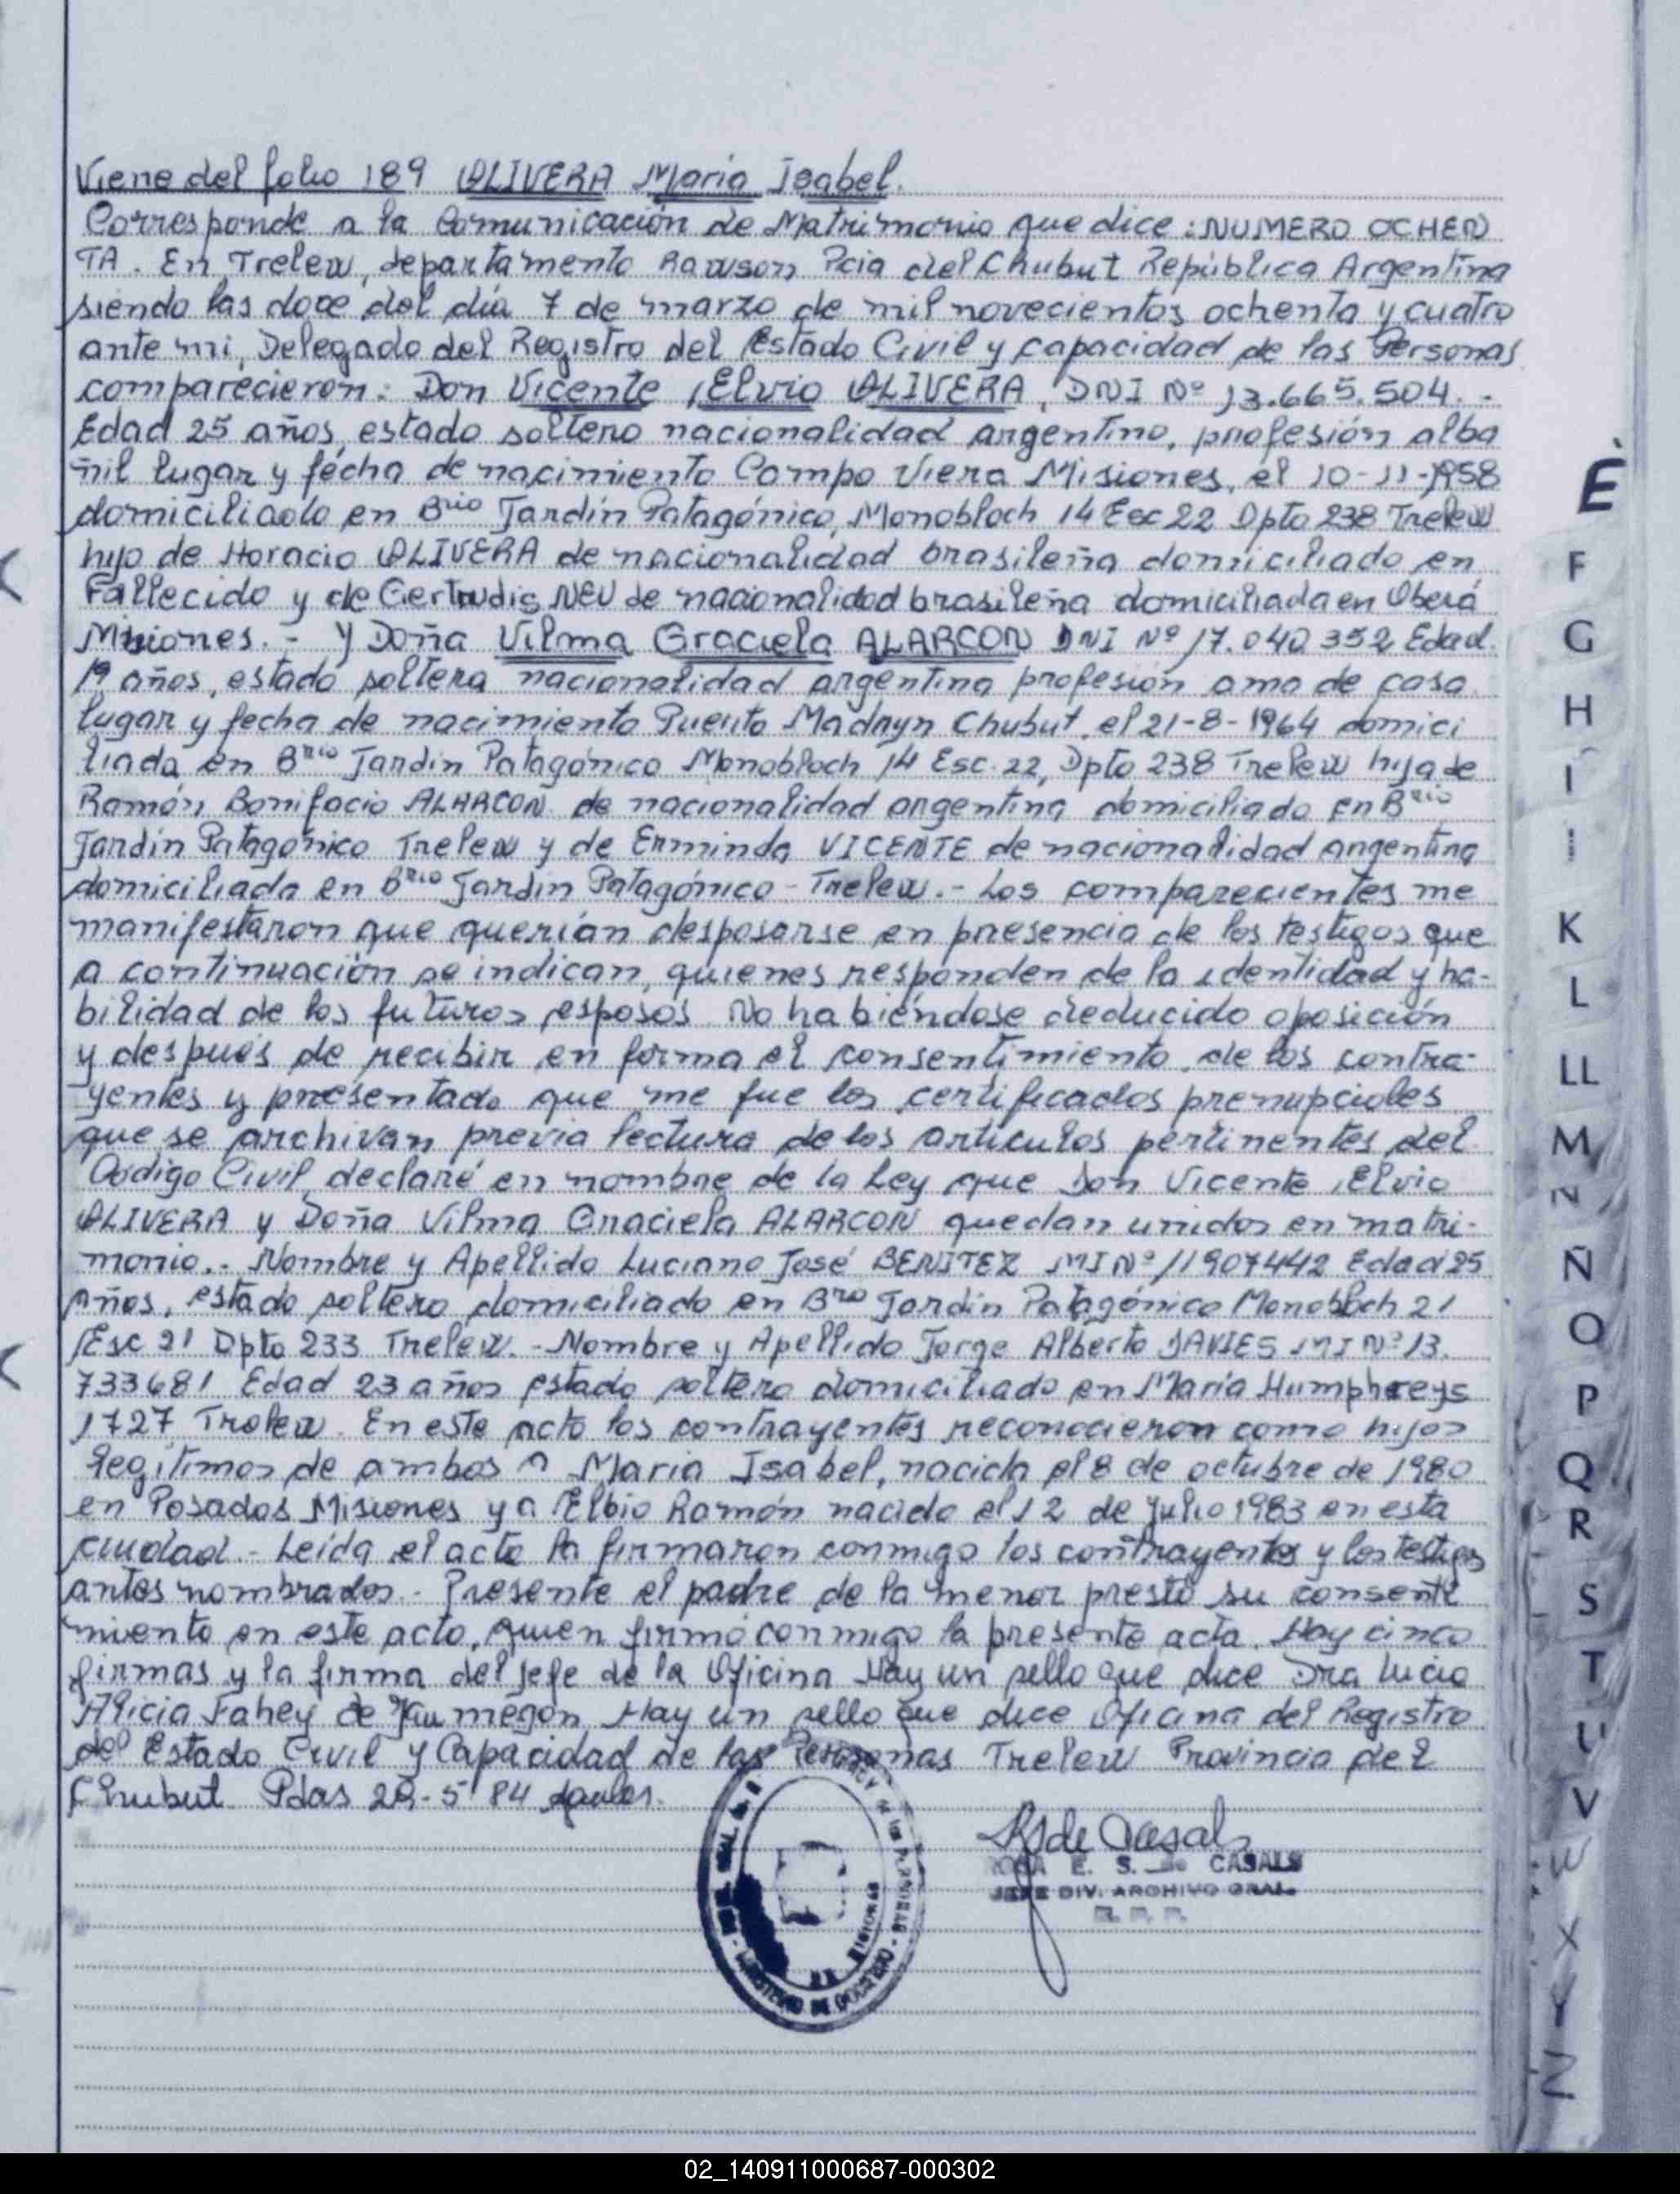 Viene del folio 189 OLIVERA María Isabel.
Corresponde a la Comunicación de Matrimonio que dice: NUMERO OCHEN
TA. En Trelew, departamento Rawson Pcia del Chubut República Argentina
siendo las doce del día 7 de marzo de mil novecientos ochenta y cuatro
ante mi, Delegado del Registro del Estado Civil y capacidad de las Personas
comparecieron: Don Vicente Elvio OLIVERA, DNI Nº 13.665.504.-
Edad 25 años, estado soltero nacionalidad argentino, profesión alba
ñil lugar y fecha de nacimiento Campo Viera Misiones, el 10-11-1958
domiciliado en Brio Jardín Patagónico, Monobloch 14 Esc 22 Dpto 238 Trelew
hijo de Horacio OLIVERA de nacionalidad brasileña domiciliado en
Fallecido y de Gertrudis NEU de nacionalidad brasileña domiciliada en Oberá
Misiones.- Y Doña Vilma Graciela ALARCON DNI Nº 17.040 352 Edad
19 años, estado soltera nacionalidad argentina profesión ama de casa
lugar y fecha de nacimiento Puerto Madryn Chubut, el 21-8-1964 domici
liada en Brio Jardín Patagónico Monobloch 14 Esc. 22, Dpto 238 Trelew hija de
Ramón Bonifacio ALARCON de nacionalidad argentina domiciliado en Brio
Jardín Patagónico Trelew y de Erminda VICENTE de nacionalidad argentina
domiciliada en Brio Jardín Patagónico - Trelew.- Los comparecientes me
manifestaron que querían desposarse en presencia de los testigos que
a continuación se indican, quienes responden de la identidad y ha-
bilidad de los futuros esposos. No habiéndose deducido oposición
y después de recibir en forma el consentimiento de los contra-
yentes y presentado que me fue los certificados prenupciales
que se archivan previa lectura de los artículos pertinentes del
Codigo Civil, declaré en nombre de la Ley que Don Vicente Elvio
OLIVERA y Doña Vilma Graciela ALARCON quedan unidos en matri-
monio.- Nombre y Apellido Luciano José BENITEZ MI Nº 11907442 Edad 25
años, estado soltero domiciliado en Bro Jardín Patagónico Monobloch 21
Esc 21 Dpto 233 Trelew.- Nombre y Apellido Jorge Alberto DAVIES MI Nº 13.
733681 Edad 23 años estado soltero domiciliado en María Humphreys
1727 Trelew. En este acto los contrayentes reconocieron como hijos
legítimos de ambos a Maria Isabel, nacida el 8 de octubre de 1980
en Posadas Misiones y a Elbio Ramón nacido el 12 de Julio 1983 en esta
ciudad.- Leída el acta la firmaron conmigo los contrayentes y los testigos
antes nombrados.- Presente el padre de la menor prestó su consenti
miento en este acto, quien firmó conmigo la presente acta. Hay cinco
firmas y la firma del Jefe de la Oficina Hay un sello que dice Dra Lucia
Alicia Fahey de Hay un sello que dice Oficina del Registro
del Estado Civil y Capacidad de las Personas Trelew Provincia del
Chubut Pdas 29-5 84
CASALS
JEFE DIV. ARCHIVO GRAL.
R. P. P.
E
F
G
H
I
K
L
LL
M
N
Ñ
O
P
Q
R
S
T
U
V
W
X
Y
Z
02_140911000687-000302